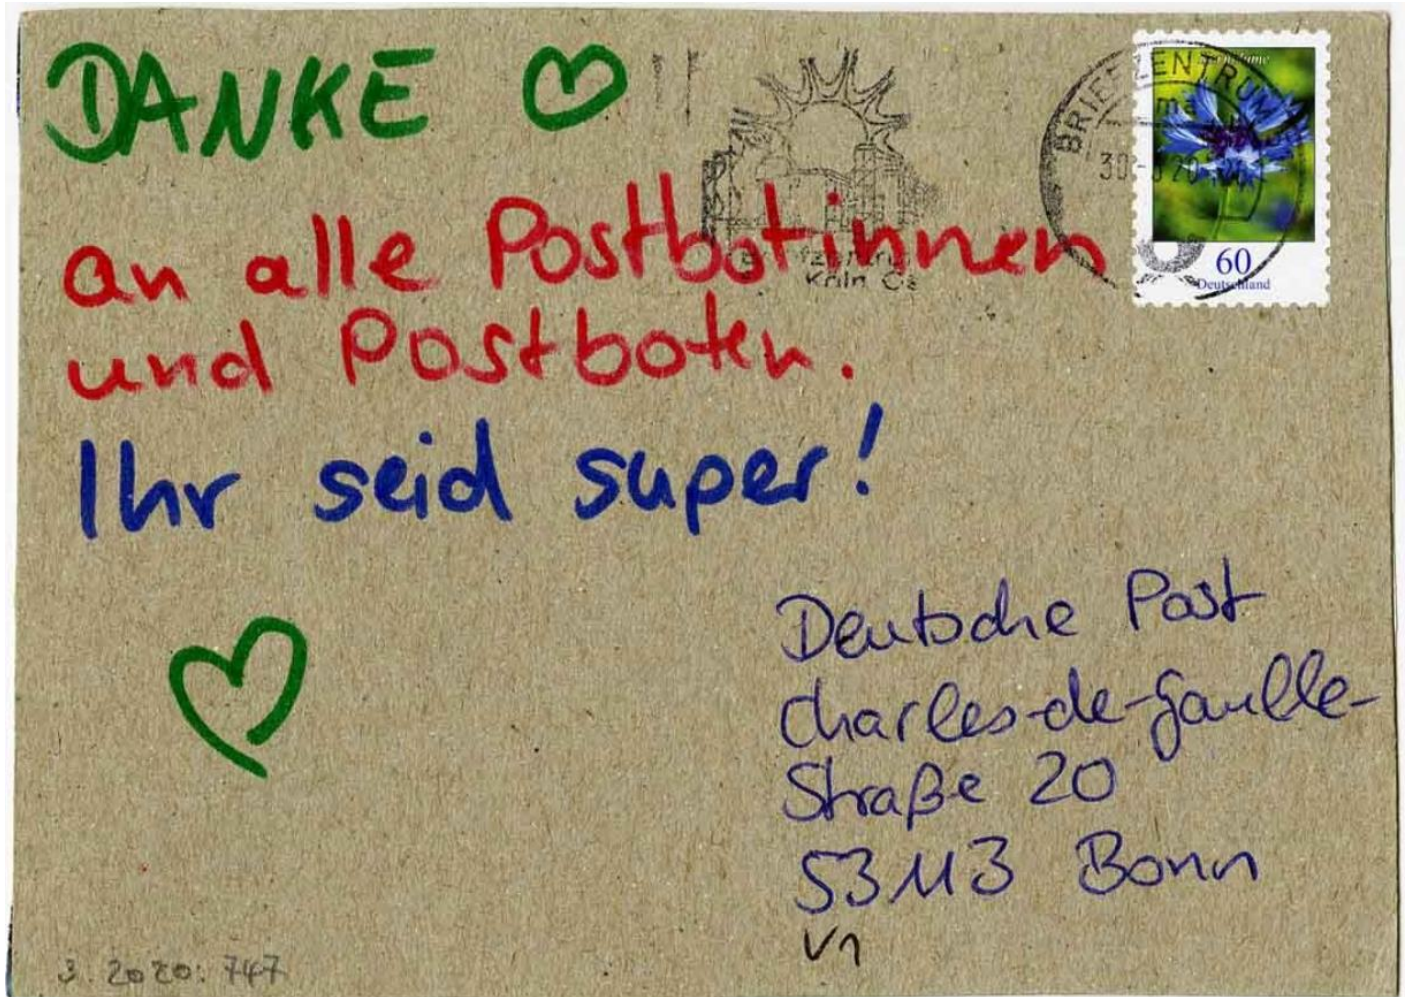 DANKE
an alle Postbotinnen
und Postboten.
Ihr seid super!
BRIEFZENTRUM
60
Deutschland
Deutsche Post
Charles-de-Gaulle-
Straße 20
53113 Bonn
V1
3.2020.747